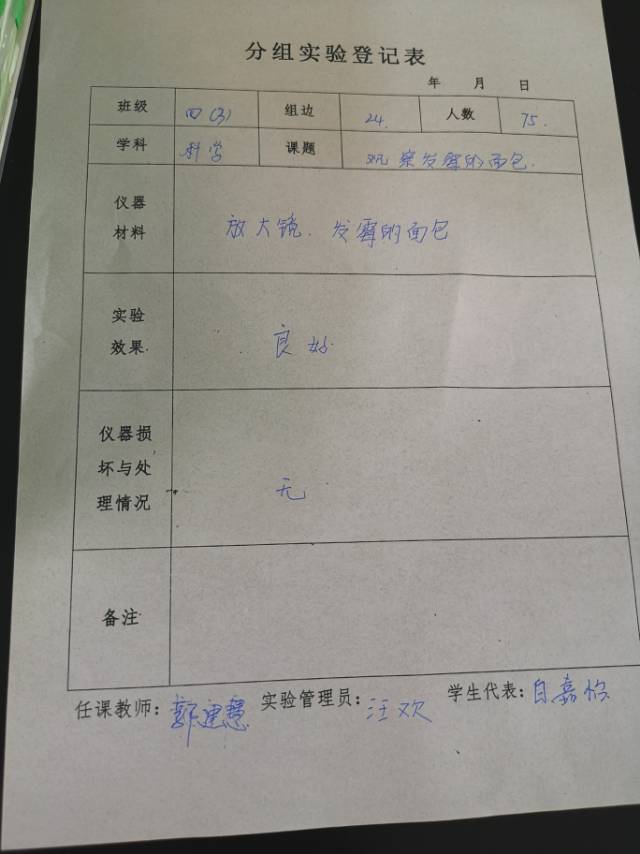 分组实验登记表
年 月 日
班级 四(3) 组边 24. 人数 75.
学科 科学 课题 观察发霉的面包.
仪器
材料
放大镜. 发霉的面包
实验
效果.
良好.
仪器损
坏与处
理情况
无
备注
任课教师: 郭建慧 实验管理员: 汪欢 学生代表: 自嘉怡